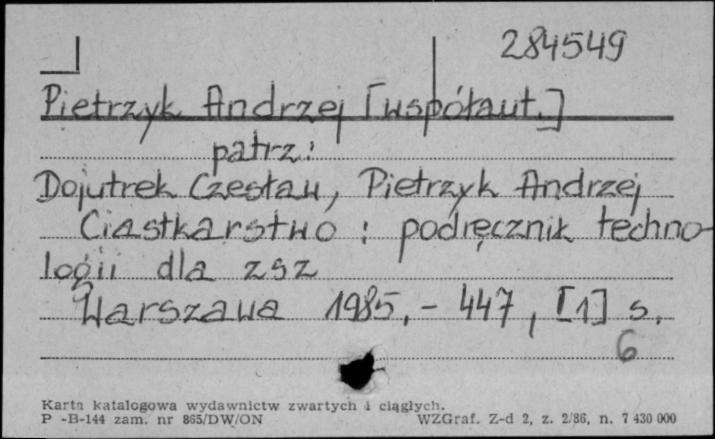 284549
Pietrzyk Andrzej [współaut.]
patrz:
Dojutrek Czesław, Pietrzyk Andrzej
Ciastkarstwo : podręcznik techno-
logii dla zsz
Warszawa 1985, - 447, [1] s.
6
Karta katalogowa wydawnictw zwartych i ciągłych.
P -B-144 zam. nr 865/DW/ON WZGraf. Z-d 2, z. 2/86, n. 7 430 000